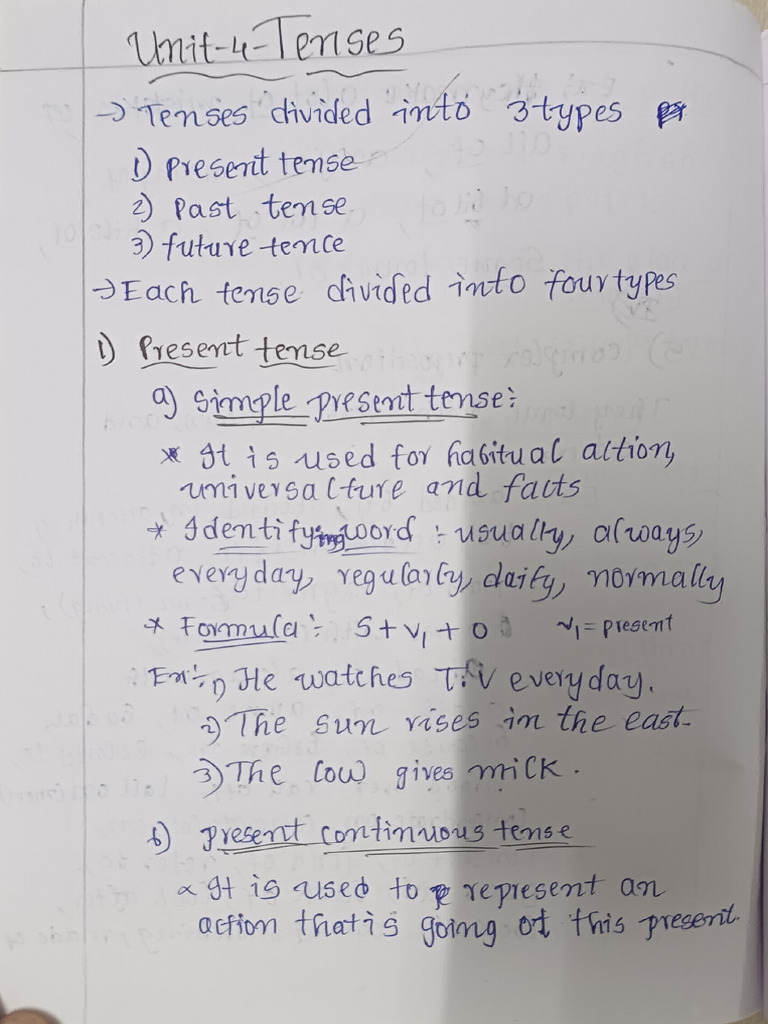 Unit-4-Tenses
→ Tenses divided into 3 types
1) Present tense
2) Past tense
3) future tence
→ Each tense divided into four types
1) Present tense
a) Simple present tense:
* It is used for habitual action,
universal ture and facts
* Identifying word :- usually, always,
everyday, regularly, daily, normally
* Formula :- S+V1+O V1 = present
Ex:- 1) He watches T.V everyday.
2) The sun rises in the east.
3) The cow gives milk.
b) present continuous tense
* It is used to represent an
action that is going ot this present.